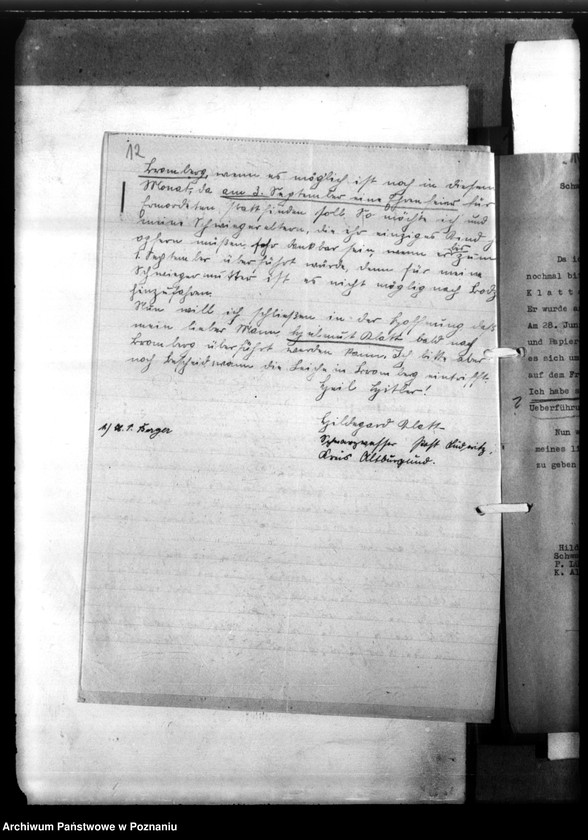 12
Bromberg, wenn es möglich ist noch in diesem
Monat, da am 3. September eine Ehrenfeier für
Ermordeten stattfinden soll. So möchte ich und
meine Schwiegereltern, die ihr einziges Kind
opfern müßten, sehr dankbar sein, wenn er bis zum
1. September überführt würde, denn für meine
Schwiegermutter ist es nicht möglig nach Lodz
hinzufahren.
Nun will ich schließen in der Hoffnung daß
mein lieber Mann, Helmut Klatt bald nach
Bromberg überführt werden kann. Ich bitte aber
noch Bescheid wann die Leiche in Bromberg eintrifft.
Heil Hitler!
Hildegard Klatt
Schwarzwasser Post
Kreis Altburgund.
Da i
nochmal bi
Klatt
Er wurde a
Am 28. Jun
und Papier
es sich um
auf dem Fr
Ich habe
Ueberführu
Nun w
meines li
zu geben
Hild
Schw
P. L
K. Al
Archiwum Państwowe w Poznaniu